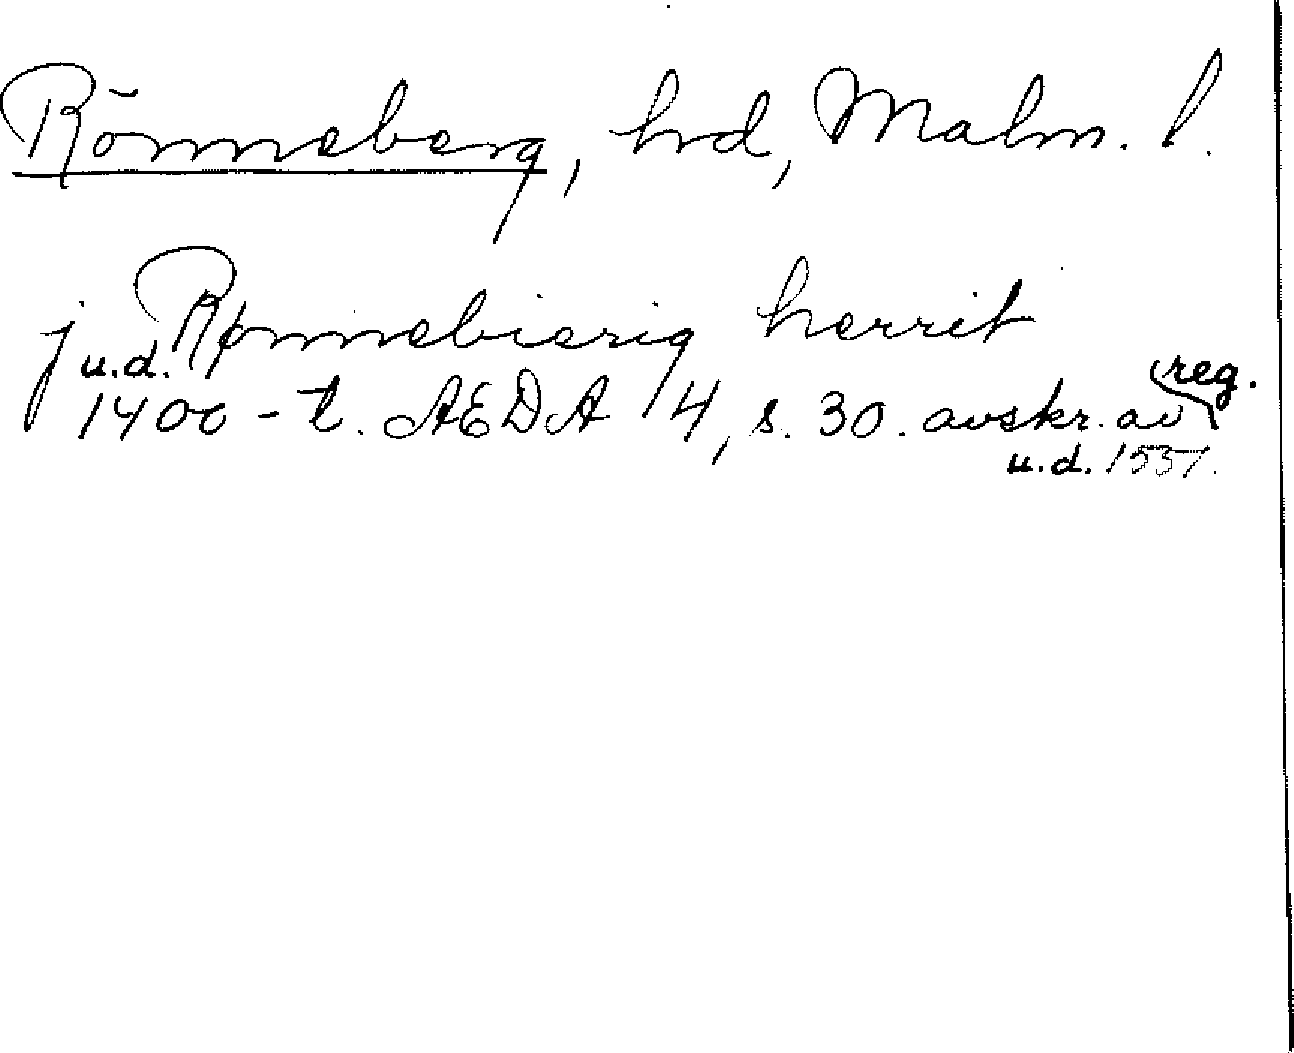 Rönneberg, hd, Malm. l.
j Rønnebierig herrit
u.d. 1400-t. AEDA 14, s. 30. avskr. av reg.
u.d. 1537.